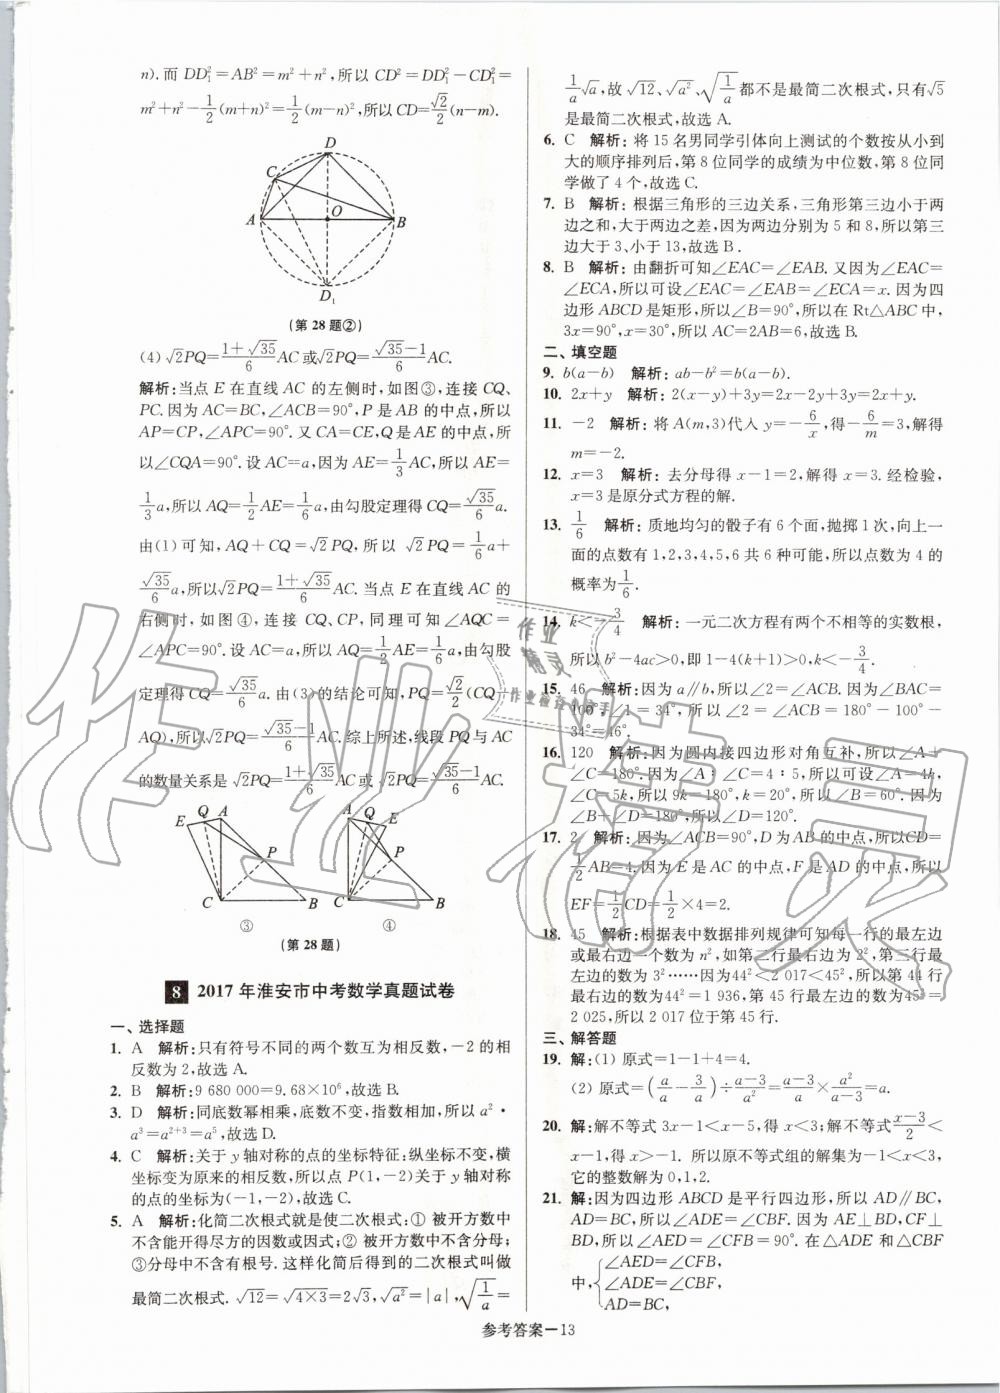 n).而 DD₁²=AB²=m²+n²,所以 CD²=DD₁²-CD₁²=
m²+n²-1/2(m+n)²=1/2(m-n)²,所以CD=√2/2(n-m).
D
C
A
O
B
D₁
(第 28 题②)
(4) √2PQ=(1+√35)/6 AC 或√2PQ=(√35-1)/6 AC.
解析:当点 E 在直线 AC 的左侧时,如图③,连接 CQ、
PC.因为 AC=BC,∠ACB=90°,P 是 AB 的中点,所以
AP=CP,∠APC=90°.又 CA=CE,Q 是 AE 的中点,所
以∠CQA=90°.设 AC=a,因为 AE=1/3 AC,所以 AE=
1/3 a,所以 AQ=1/2 AE=1/6 a,由勾股定理得 CQ=√35/6 a.
由(1)可知,AQ+CQ=√2PQ,所以 √2PQ=1/6 a+
√35/6 a,所以√2PQ=(1+√35)/6 AC.当点 E 在直线 AC 的
右侧时,如图④,连接 CQ、CP,同理可知∠AQC=
∠APC=90°.设 AC=a,所以 AQ=1/2 AE=1/6 a,由勾股
定理得 CQ=√35/6 a.由(3)的结论可知,PQ=√2/2(CQ-
AQ),所以√2PQ=(√35-1)/6 AC.综上所述,线段 PQ 与 AC
的数量关系是 √2PQ=(1+√35)/6 AC 或 √2PQ=(√35-1)/6 AC.
E Q A
P
C B
③
A Q E
P
C B
④
(第 28 题)
8 2017 年淮安市中考数学真题试卷
一、选择题
1. A 解析:只有符号不同的两个数互为相反数,-2 的相
反数为 2,故选 A.
2. B 解析:9 680 000=9.68×10⁶,故选 B.
3. D 解析:同底数幂相乘,底数不变,指数相加,所以 a²·
a³=a²⁺³=a⁵,故选 D.
4. C 解析:关于 y 轴对称的点的坐标特征:纵坐标不变,横
坐标变为原来的相反数,所以点 P(1,-2)关于 y 轴对称
的点的坐标为(-1,-2),故选 C.
5. A 解析:化简二次根式就是使二次根式:① 被开方数中
不含能开得尽方的因数或因式;② 被开方数中不含分母;
③分母中不含有根号.这样化简后得到的二次根式叫做
最简二次根式.√12=√(4×3)=2√3,√a²=|a|,√(1/a)=
1/a √a,故 √12、√a²、√(1/a)都不是最简二次根式,只有√5
是最简二次根式,故选 A.
6. C 解析:将 15 名男同学引体向上测试的个数按从小到
大的顺序排列后,第 8 位同学的成绩为中位数,第 8 位同
学做了 4 个,故选 C.
7. B 解析:根据三角形的三边关系,三角形第三边小于两
边之和,大于两边之差,因为两边分别为 5 和 8,所以第三
边大于 3、小于 13,故选 B.
8. B 解析:由翻折可知∠EAC=∠EAB.又因为∠EAC=
∠ECA,所以可设∠EAC=∠EAB=∠ECA=x.因为四
边形 ABCD 是矩形,所以∠B=90°,所以在 Rt△ABC 中,
3x=90°,x=30°,所以 AC=2AB=6,故选 B.
二、填空题
9. b(a-b) 解析:ab-b²=b(a-b).
10. 2x+y 解析:2(x-y)+3y=2x-2y+3y=2x+y.
11. -2 解析:将 A(m,3)代入 y=-6/x,得-6/m=3,解得
m=-2.
12. x=3 解析:去分母得 x-1=2,解得 x=3.经检验,
x=3 是原分式方程的解.
13. 1/6 解析:质地均匀的骰子有 6 个面,抛掷 1 次,向上一
面的点数有 1,2,3,4,5,6 共 6 种可能,所以点数为 4 的
概率为1/6.
14. k<-3/4 解析:一元二次方程有两个不相等的实数根,
所以 b²-4ac>0,即 1-4(k+1)>0,解得 k<-3/4.
15. 46 解析:因为 a∥b,所以∠2=∠ACB.因为∠BAC=
100°,∠1=34°,所以∠2=∠ACB=180°-100°-
34°=46°.
16. 120 解析:因为圆内接四边形对角互补,所以∠A+
∠C=180°.因为∠A:∠C=4:5,所以可设∠A=4k,
∠C=5k,所以 9k=180°,k=20°,所以∠B=60°.因为
∠B+∠D=180°,所以∠D=120°.
17. 2 解析:因为∠ACB=90°,D 为 AB 的中点,所以CD=
1/2 AB=4.因为 E 是 AC 的中点,F 是 AD 的中点,所以
EF=1/2 CD=1/2×4=2.
18. 45 解析:根据表中数据排列规律可知每一行的最左边
或最右边一个数为 n²,如第二行最右边为 2²,第三行最
左边的数为 3²……因为44²<2 017<45²,所以第 44 行
最右边的数为44²=1 936,第 45 行最左边的数为45²=
2 025,所以 2 017 位于第 45 行.
三、解答题
19. 解:(1) 原式=1-1+4=4.
(2) 原式=(a/a-3/a)÷(a-3)/a²=(a-3)/a×a²/(a-3)=a.
20. 解:解不等式 3x-1<x-5,得 x<3;解不等式(x-3)/2<
x-1,得 x>-1. 所以原不等式组的解集为-1<x<3,
它的整数解为 0,1,2.
21. 解:因为四边形 ABCD 是平行四边形,所以 AD∥BC,
AD=BC,所以∠ADE=∠CBF.因为 AE⊥BD,CF⊥
BD,所以∠AED=∠CFB=90°.在△ADE 和△CBF
中,{∠AED=∠CFB,
∠ADE=∠CBF,
AD=BC,
参考答案—13
作业精灵
作业
精灵
作业检查小助手